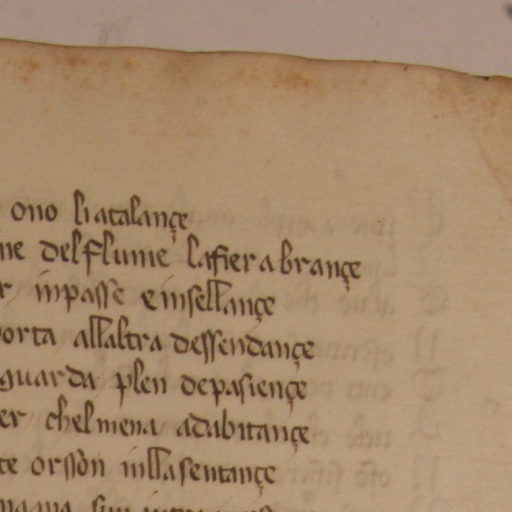 ono li atalançe
ne del flume la fier abrançe
r inpasse e insellançe
orta all altra dessendançe
guarda plen de pasiençe
er chel mena ad abitançe
te orsson in lla sentançe